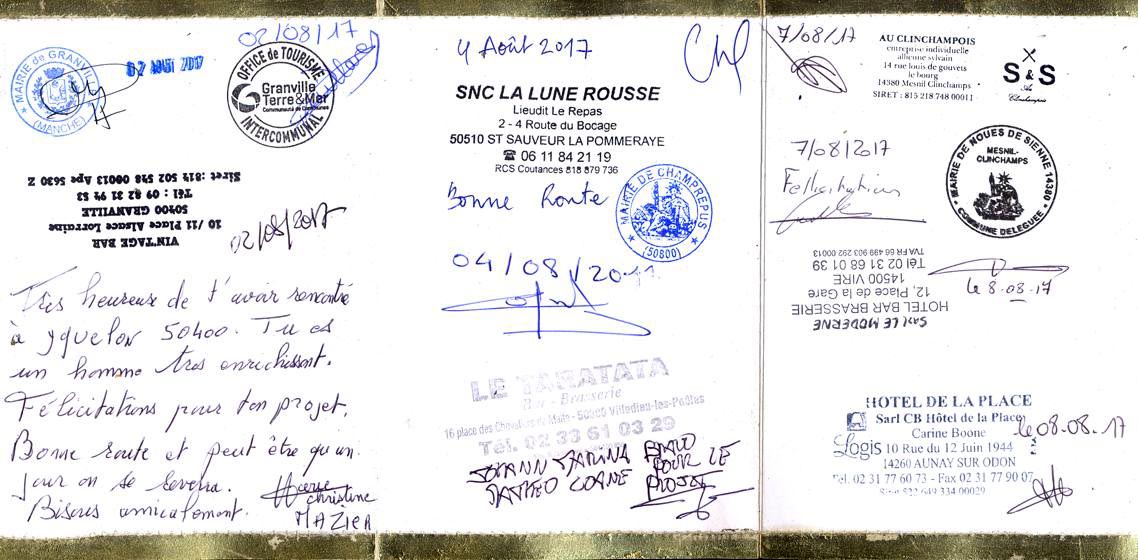 02/08/17
MAIRIE de GRANVILLE
(MANCHE)
02 AOUT 2017
OFFICE de TOURISME
Granville
Terre & Mer
Communauté de Communes
INTERCOMMUNAL
VINTAGE BAR
10 / 11 Place Alsace Lorraine
50400 GRANVILLE
Tél : 09 82 31 94 53
Siret :814 502 598 00013 Ape 5630 Z
02/08/2017
Très heureuse de t'avoir rencontré
à Yquelon 50400. Tu es
un homme très enrichissant.
Félicitations pour ton projet.
Bonne route et peut être qu'un
jour on se reverra.
Bisous amicalement.
christine
MAZIER
4 Août 2017
SNC LA LUNE ROUSSE
Lieudit Le Repas
2 - 4 Route du Bocage
50510 ST SAUVEUR LA POMMERAYE
☎ 06 11 84 21 19
RCS Coutances 818 879 736
Bonne Route
MAIRIE DE CHAMPREPUS
(50800)
04/08/2017
LE TARATATA
Bar - Brasserie
16 place des Chevaliers de Malte - 50800 Villedieu-les-Poêles
Tél. 02 33 61 03 29
BRAVO
POUR LE
PROJET
7/08/17
AU CLINCHAMPOIS
entreprise individuelle
allienne sylvain
14 rue louis de gouvets
le bourg
14380 Mesnil Clinchamps
SIRET : 815 218 748 00011
S & S
Au
Clinchampois
7/08/2017
Félicitations
MAIRIE DE NOUES DE SIENNE 14380
MESNIL-
CLINCHAMPS
COMMUNE DELEGUEE
SARL LE MODERNE
HOTEL BAR BRASSERIE
12, Place de la Gare
14500 VIRE
Tél 02 31 68 01 39
TVA FR 66 499 903 292 00013
le 8-08-17
HOTEL DE LA PLACE
Sarl CB Hôtel de la Place
Carine Boone
Logis 10 Rue du 12 Juin 1944
14260 AUNAY SUR ODON
Tel. 02 31 77 60 73 - Fax 02 31 77 90 07
Siret 522 649 334 00029
le 08-08-17